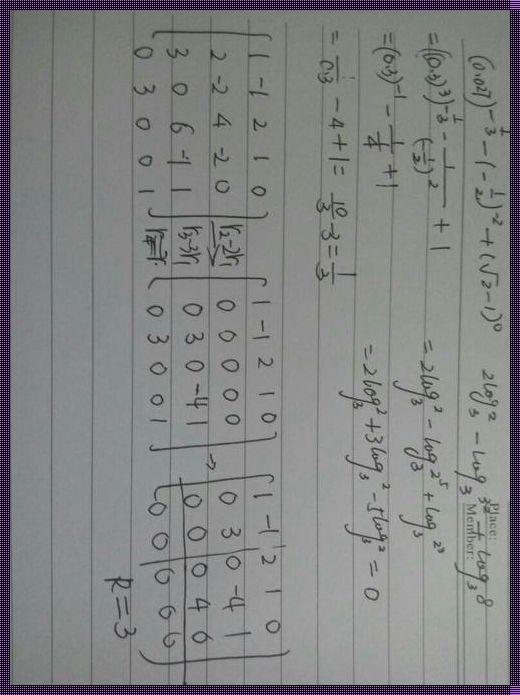 (0.027)^{-1/3} - (-1/2)^{-2} + (√2-1)^0
= ((0.3)^3)^{-1/3} - 1/(-1/2)^2 + 1
= (0.3)^{-1} - 1/(1/4) + 1
= 1/0.3 - 4 + 1 = 10/3 - 3 = 1/3
2log_3 2 - log_3 32 + log_3 8
Place:
Member:
= 2log_3 2 - log_3 2^5 + log_3 2^3
= 2log_3 2 + 3log_3 2 - 5log_3 2 = 0
1 -1 2 1 0
2 -2 4 -2 0
3 0 6 -1 1
0 3 0 0 1
r2-2r1
r3-3r1
1 -1 2 1 0
0 0 0 0 0
0 3 0 -4 1
0 3 0 0 1
→
1 -1 2 1 0
0 3 0 -4 1
0 0 0 4 0
0 0 0 0 0
R=3